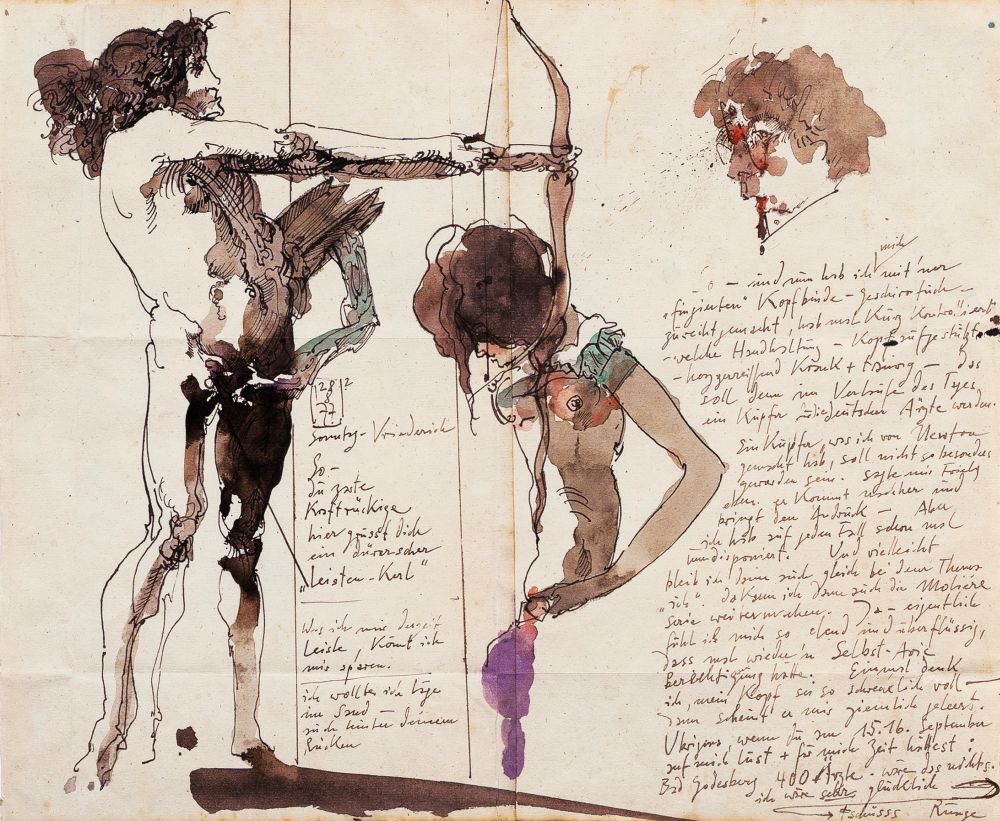 28/2
77
Sonntag - Friederich
So -
Du zarte
Kraftrückige
hier grüsst dich
ein dürerscher
"Leisten-Kerl"
Was ich mir derzeit
leiste, könnt ich
mir sparen.
ich wollte ich läge
im Sand
hinter Deinem
Rücken
mich
- ö - und nun hab ich mit 'ner
"fingierten" Kopfbinde - Geschirrtuch -
zurechtgemacht, hab mal kurz kontrolliert
- welche Handhaltung - Kopf aufgestützt
- Krank + traurig - das
soll dann im Verlaufe des Tages
ein Kupfer Ärzte werden.
Ein Kupfer, was ich von Newton
gemacht hab, soll nicht so besonders
geworden sein. sagte mir
eben. er kommt nachher und
bringt den Andruck - Aber
ich hab auf jeden Fall schon mal
umdisponiert. Und vielleicht
bleib ich dann auch gleich bei dem Thema
"ich". da kann ich dann auch die Moliere
Serie weitermachen. Ja - eigentlich
fühl ich mich so elend und überflüssig,
dass mal wieder 'n Selbst-Arie
Berechtigung hätte. Einmal denk
ich, mein Kopf sei so schwerlich voll -
dann scheint er mir ziemlich geleert.
Übrigens, wenn Du am 15. 16. September
auf mich Lust + für mich Zeit hättest:
Bad Godesberg 400 Ärzte. wäre das nichts.
ich wäre sehr glücklich
Tschüsss Runge